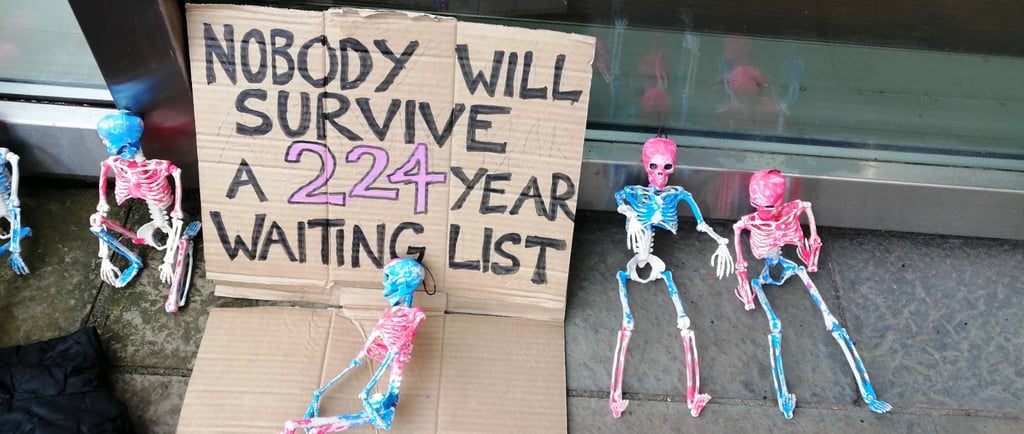 NOBODY WILL
SURVIVE
A 224 YEAR
WAITING LIST